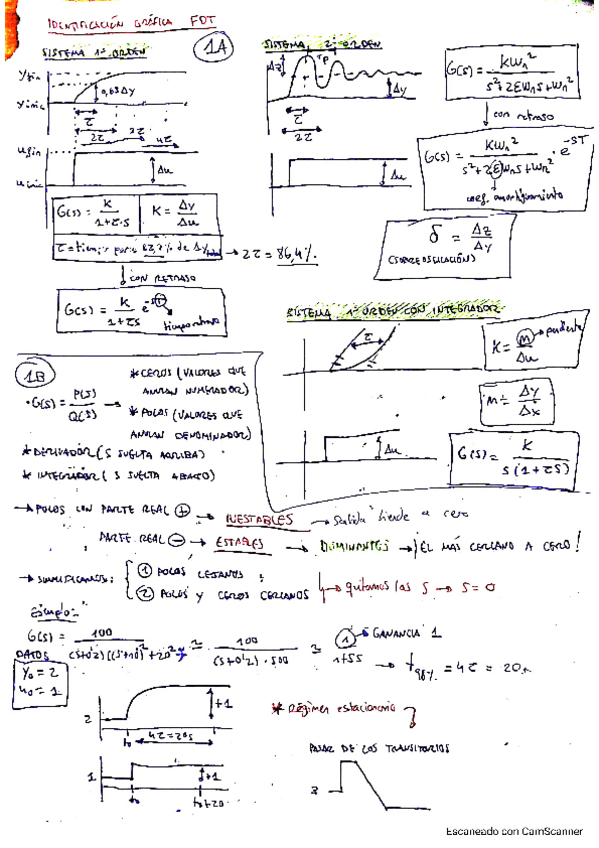 IDENTIFICACIÓN GRÁFICA FDT
1A
SISTEMA 1er ORDEN
SISTEMA 2º ORDEN
yfin
yinic
0,63Δy
τ
2τ
4τ
ufin
uinic
Δu
G(s) = K / (1+τ·s)
K = Δy / Δu
→ 2τ = 86,4%
CON RETRASO
G(s) = K / (1+τs) e^-sT
tiempo retraso
Δz
Tp
Δy
τ
2τ
Δu
G(s) = KWn² / (s²+2ξWns+Wn²)
con retraso
G(s) = KWn² / (s²+2ξWns+Wn²) · e^-ST
coef. amortiguamiento
δ = Δz / Δy
(SOBREOSCILACIÓN)
SISTEMA 1er ORDEN CON INTEGRADOR
τ
K = m / Δu
pendiente
m = Δy / Δx
Δu
G(s) = K / (s(1+τs))
1B
· G(s) = P(s) / Q(s) →
* CEROS (VALORES QUE
ANULAN NUMERADOR)
* POLOS (VALORES QUE
ANULAN DENOMINADOR)
* DERIVADOR (S SUELTA ARRIBA)
* INTEGRADOR (S SUELTA ABAJO)
→ POLOS CON PARTE REAL + → INESTABLES → Salida tiende a cero
PARTE REAL - → ESTABLES → DOMINANTES → ¡EL MÁS CERCANO A CERO!
→ SIMPLIFICAMOS: 1 POLOS LEJANOS
2 POLOS Y CEROS CERCANOS
→ quitamos las S → S=0
Ejemplo:
G(s) = 100 / (s+0'2)((s+10)²+20²) ≃ 100 / (s+0'2)·500 ≃ 1 / 1+5s
GANANCIA 1
→ t98% = 4τ = 20s
DATOS
y0 = 2
u0 = 1
2
+1
t0
4τ=20s
1
+1
t0
t0+20
* Régimen estacionario
PASAR DE LOS TRANSITORIOS
Escaneado con CamScanner